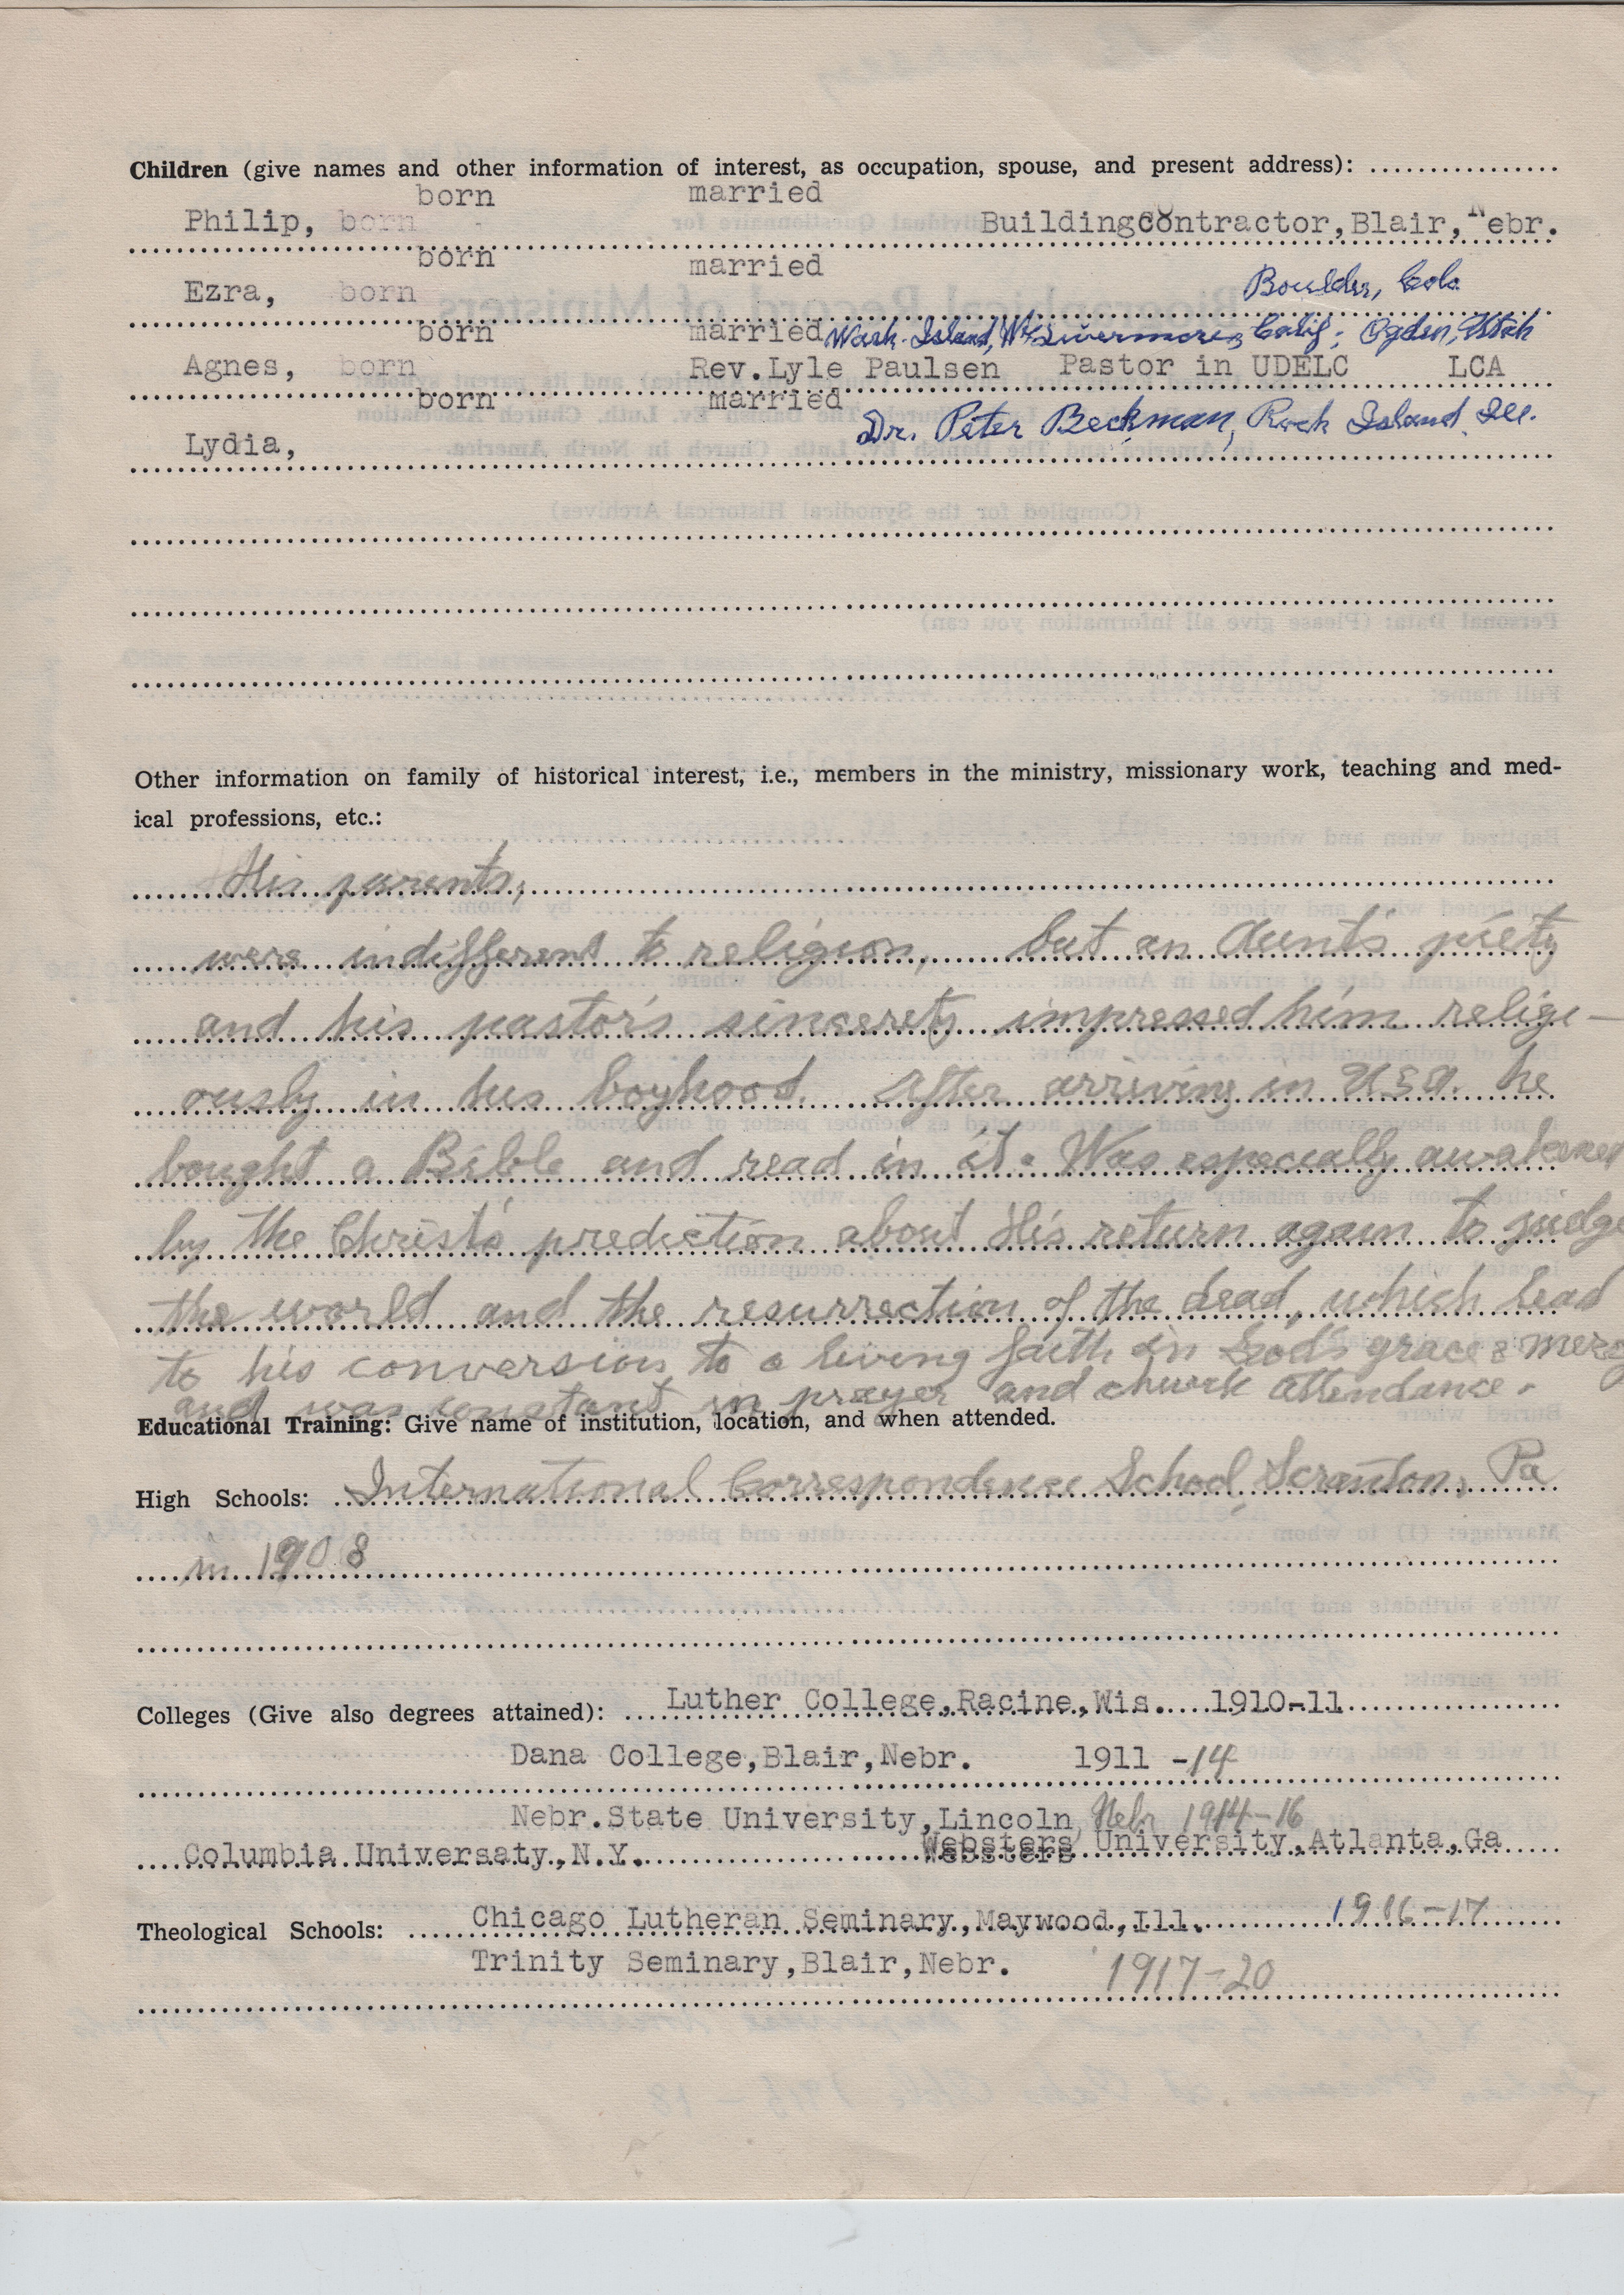 Children (give names and other information of interest, as occupation, spouse, and present address): ................
born married
Philip, born - Buildingcontractor, Blair, Nebr.
born married
Ezra, born Boulder, Colo
born married Wash. Island, Wis Livermore, Calif; Ogden, Utah
Agnes, born Rev.Lyle Paulsen Pastor in UDELC LCA
born married
Lydia, Dr. Peter Beckman, Rock Island, Ill.
Other information on family of historical interest, i.e., members in the ministry, missionary work, teaching and med-
ical professions, etc.:
His parents,
were indifferent to religion, but an Aunt's piety
and his pastor's sincerety impressed him religi-
ously in his boyhood. After arriving in U.S.A. he
bought a Bible and read in it. Was especially awakened
by the Christ's prediction about His return again to judge
the world and the resurrection of the dead, which lead
to his conversion to a living faith in God's grace & mercy
and was constant in prayer and church attendance.
Educational Training: Give name of institution, location, and when attended.
High Schools: International Correspondence School, Scranton, Pa
in 1908
Colleges (Give also degrees attained): Luther College,Racine,Wis. 1910-11
Dana College,Blair,Nebr. 1911 -14
Nebr.State University,Lincoln Nebr 1914-16
Columbia Universaty,N.Y. Websters University,Atlanta,Ga
Theological Schools: Chicago Lutheran Seminary,Maywood,Ill. 1916-17
Trinity Seminary,Blair,Nebr. 1917-20